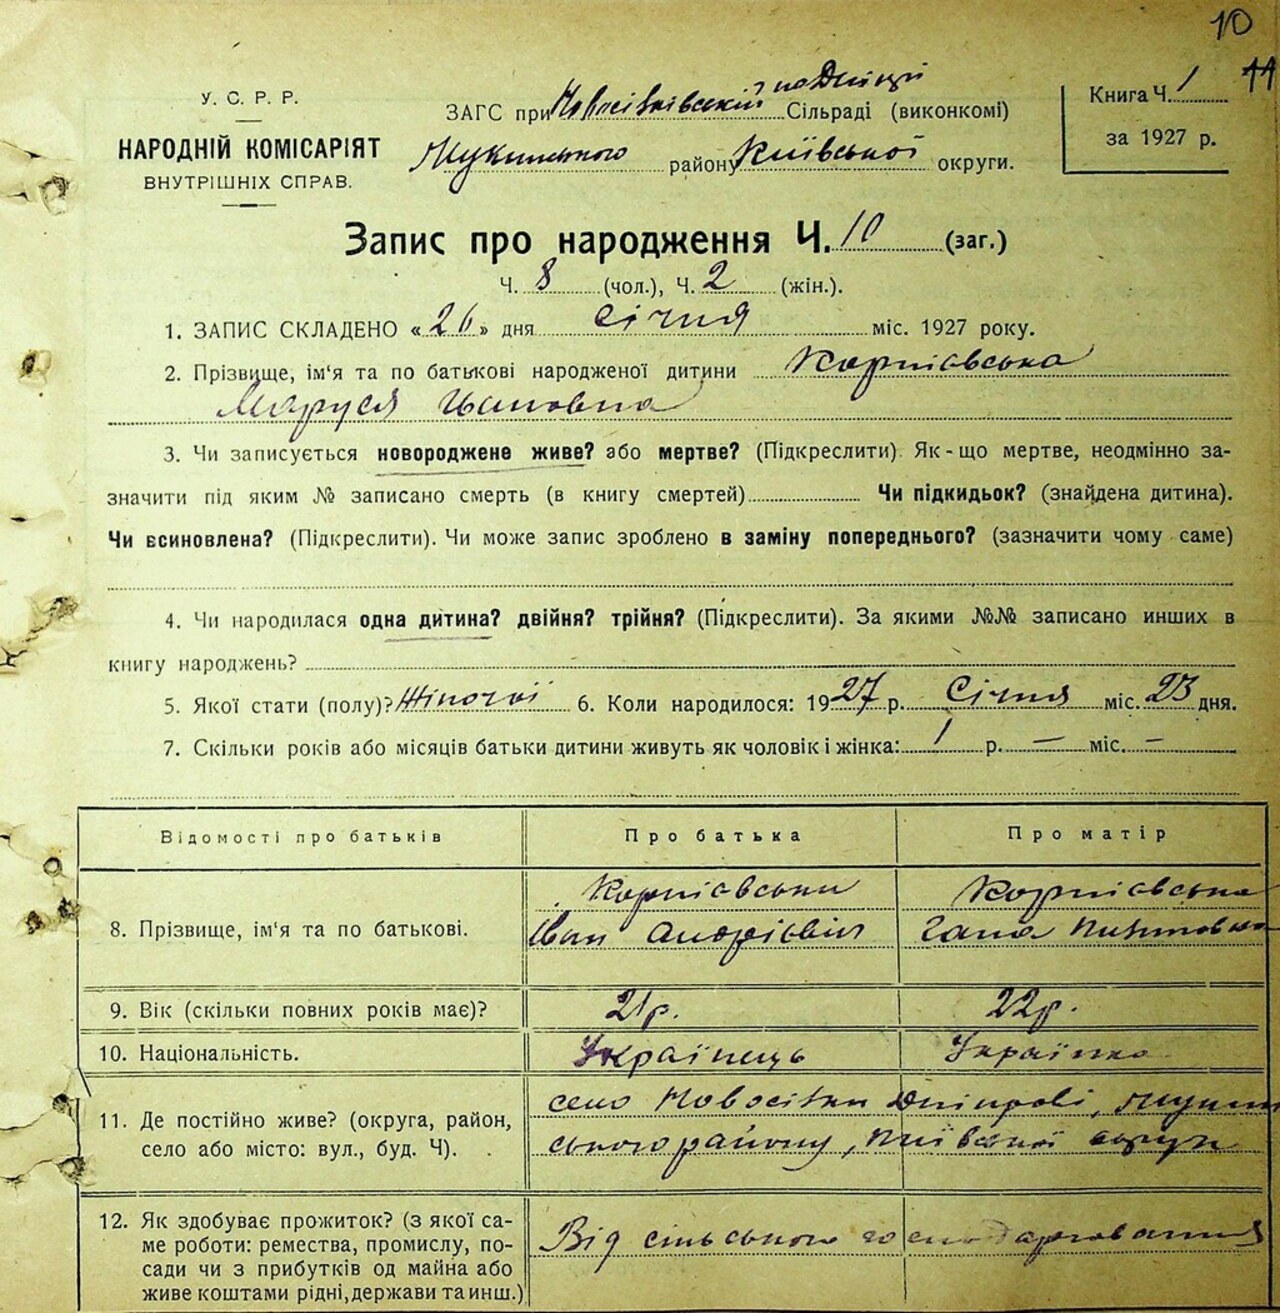 10
11
У. С. Р. Р.
НАРОДНІЙ КОМІСАРІЯТ
ВНУТРІШНІХ СПРАВ.
ЗАГС при Новосілківській подніпр Сільраді (виконкомі)
району Київської округи.
Книга Ч. 1
за 1927 р.
Запис про народження Ч. 10 (заг.)
Ч. 8 (чол.), Ч. 2 (жін.).
1. ЗАПИС СКЛАДЕНО «26» дня Січня міс. 1927 року.
2. Прізвище, ім'я та по батькові народженої дитини Корпієвська
Маруся Івановна
3. Чи записується новороджене живе? або мертве? (Підкреслити). Як-що мертве, неодмінно за-
значити під яким № записано смерть (в книгу смертей) Чи підкидьок? (знайдена дитина).
Чи всиновлена? (Підкреслити). Чи може запис зроблено в заміну попереднього? (зазначити чому саме)
4. Чи народилася одна дитина? двійня? трійня? (Підкреслити). За якими №№ записано инших в
книгу народжень?
5. Якої стати (полу)? Жіночої 6. Коли народилося: 1927 р. Січня міс. 23 дня.
7. Скільки років або місяців батьки дитини живуть як чоловік і жінка: 1 р. — міс. —
Відомості про батьків Про батька Про матір
8. Прізвище, ім'я та по батькові.
Корпієвськи Корпієвська
Іван Андрієвіч Гана
9. Вік (скільки повних років має)? 21 р. 22 р.
10. Національність. Українець Українка
11. Де постійно живе? (округа, район,
село або місто: вул., буд. Ч).
село Новосілки Дніпрові,
ського району, Київської округи
12. Як здобуває прожиток? (з якої са-
ме роботи: ремества, промислу, по-
сади чи з прибутків од майна або
живе коштами рідні, держави та инш.)
Від сільського господарювання